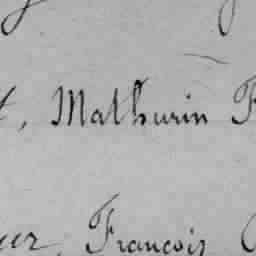 t, Mathurin F
eur, François